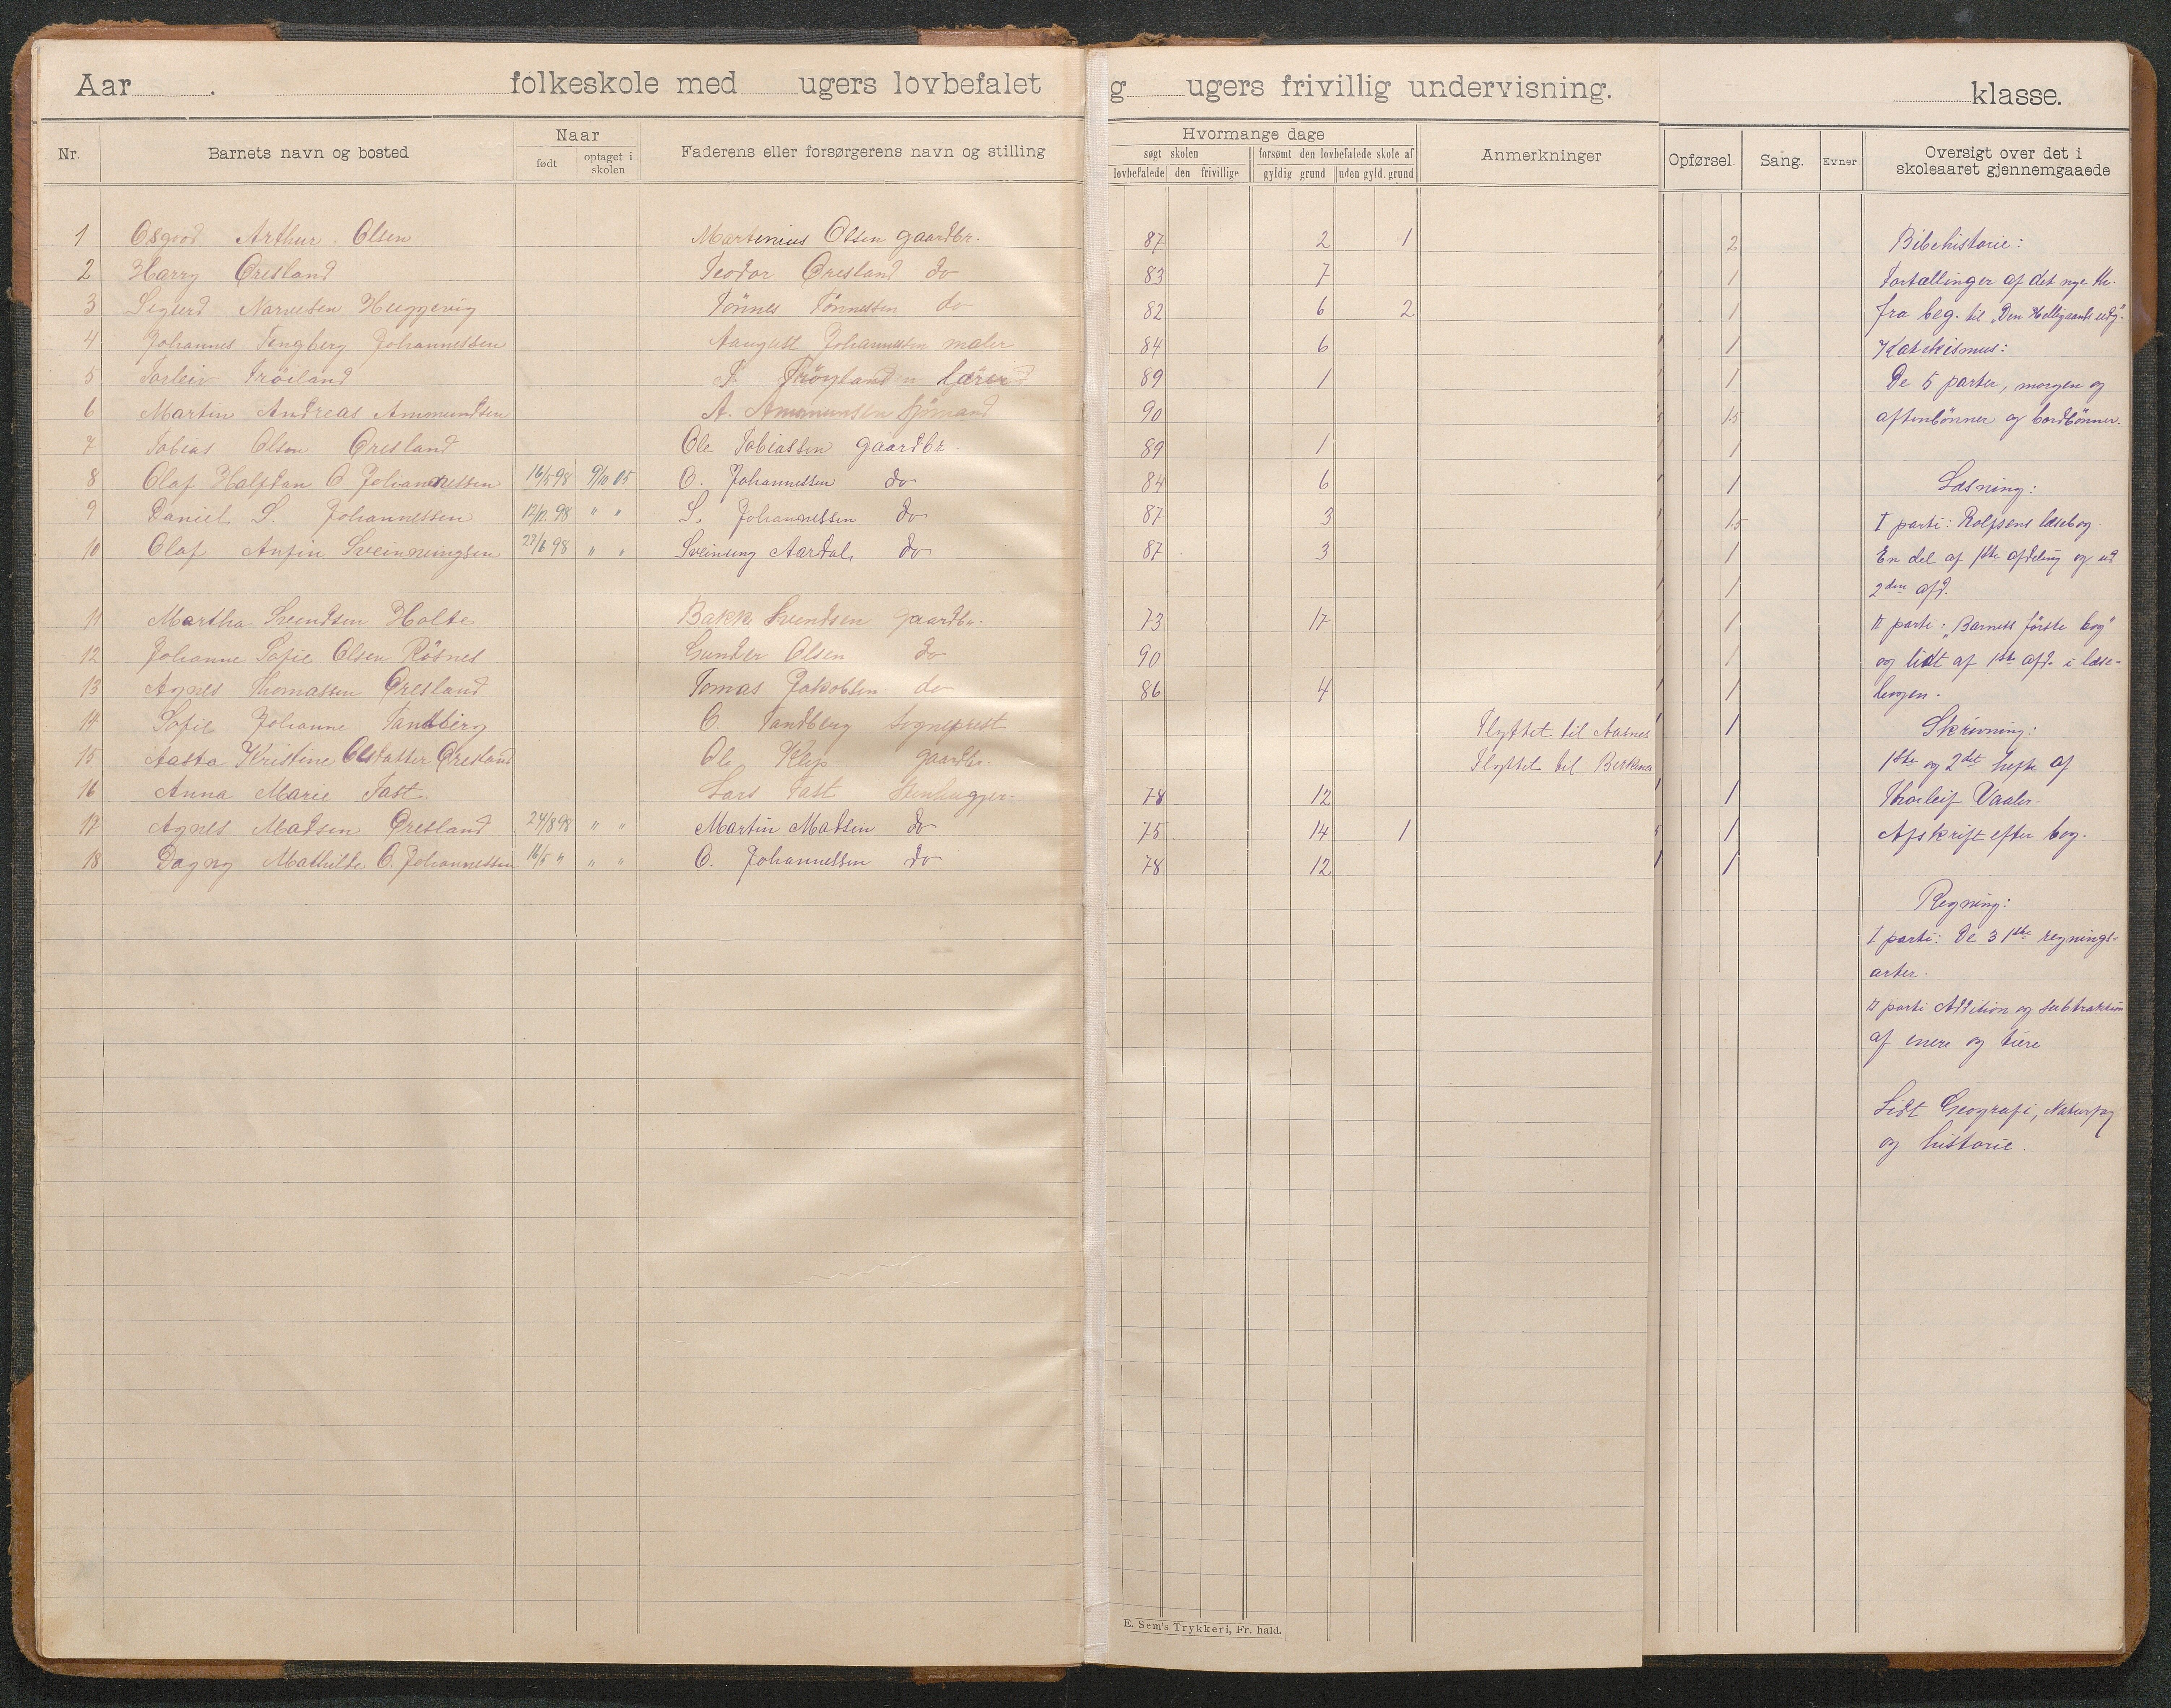 Aar . folkeskole med ugers lovbefalet g ugers frivillig undervisning. klasse.
Nr. Barnets navn og bosted Naar født optaget i skolen Faderens eller forsørgerens navn og stilling
Hvormange dage søgt skolen lovbefalede den frivillige forsømt den lovbefalede skole af gyldig grund uden gyld. grund Anmerkninger
Opførsel. Sang. Evner Oversigt over det i skoleaaret gjennemgaaede
1 Osgood Arthur Olsen Martinius Olsen gaardbr. 87 2 1 2
2 Harry Øresland Teodor Øresland do 83 7 1
3 Sigurd Narvesen Heggevig Tönnes Tönnessen do 82 6 2 1
4 Johannes Tengberg Johannessen August Johannessen maler 84 6 1
5 Torleiv Tröiland T. Tröyland lærer 89 1 1
6 Martin Andreas Ammundsen A. Ammunsen sjömand 90 1.5
7 Tobias Olsen Øresland Ole Tobiassen gaardbr. 89 1 1
8 Olaf Halfdan O. Johannessen 16/5 98 9/10 05 O. Johannessen do 84 6 1
9 Daniel S. Johannessen 12/12 98 " " S. Johannessen do 87 3 1.5
10 Olaf Anfin Sveinungsen 27/6 98 " " Sveinung Aardal do 87 3 1
11 Martha Svendsen Holte Bakke Svendsen gaardbr. 73 17 1
12 Johanne Sofie Olsen Rösnes Gunder Olsen do 90 1
13 Agnes Thomassen Øresland Tomas Jakobsen do 86 4 1
14 Sofie Johanne Tandberg O. Tandberg Sogneprest Flyttet til Aasnes 1
15 Aasta Kristine Olsdatter Øresland Ole Klep gaardbr. Flyttet til Birkenes
16 Anna Marie Fast. Lars Fast Stenhugger 78 12 1
17 Agnes Madsen Øresland 24/8 98 " " Martin Madsen do 75 14 1 1
18 Dagny Mathilde O. Johannessen 16/5 " " " O. Johannessen do 78 12 1
Bibehistorie:
Fortællinger af det nye th.
fra beg. til "Den Helligaands udg".
Katekismus:
De 5 parter, morgen og
aftenbönner og bordbönner.
Læsning:
I parti: Rolfsens læsebog.
En del af 1ste afdeling og ud
2den afd.
II parti: "Barnets förste bog"
og lidt af 1ste afd. i læse-
bogen.
Skrivning:
1ste og 2det hefte af
Thorleif Vaaler.
Afskrift efter bog.
Regning:
I parti: De 3 1ste regnings-
arter.
II parti Addition og subtraktion
af enere og tiere
Lidt Geografi, Naturfag
og historie.
E. Sem's Trykkeri, Fr. hald.